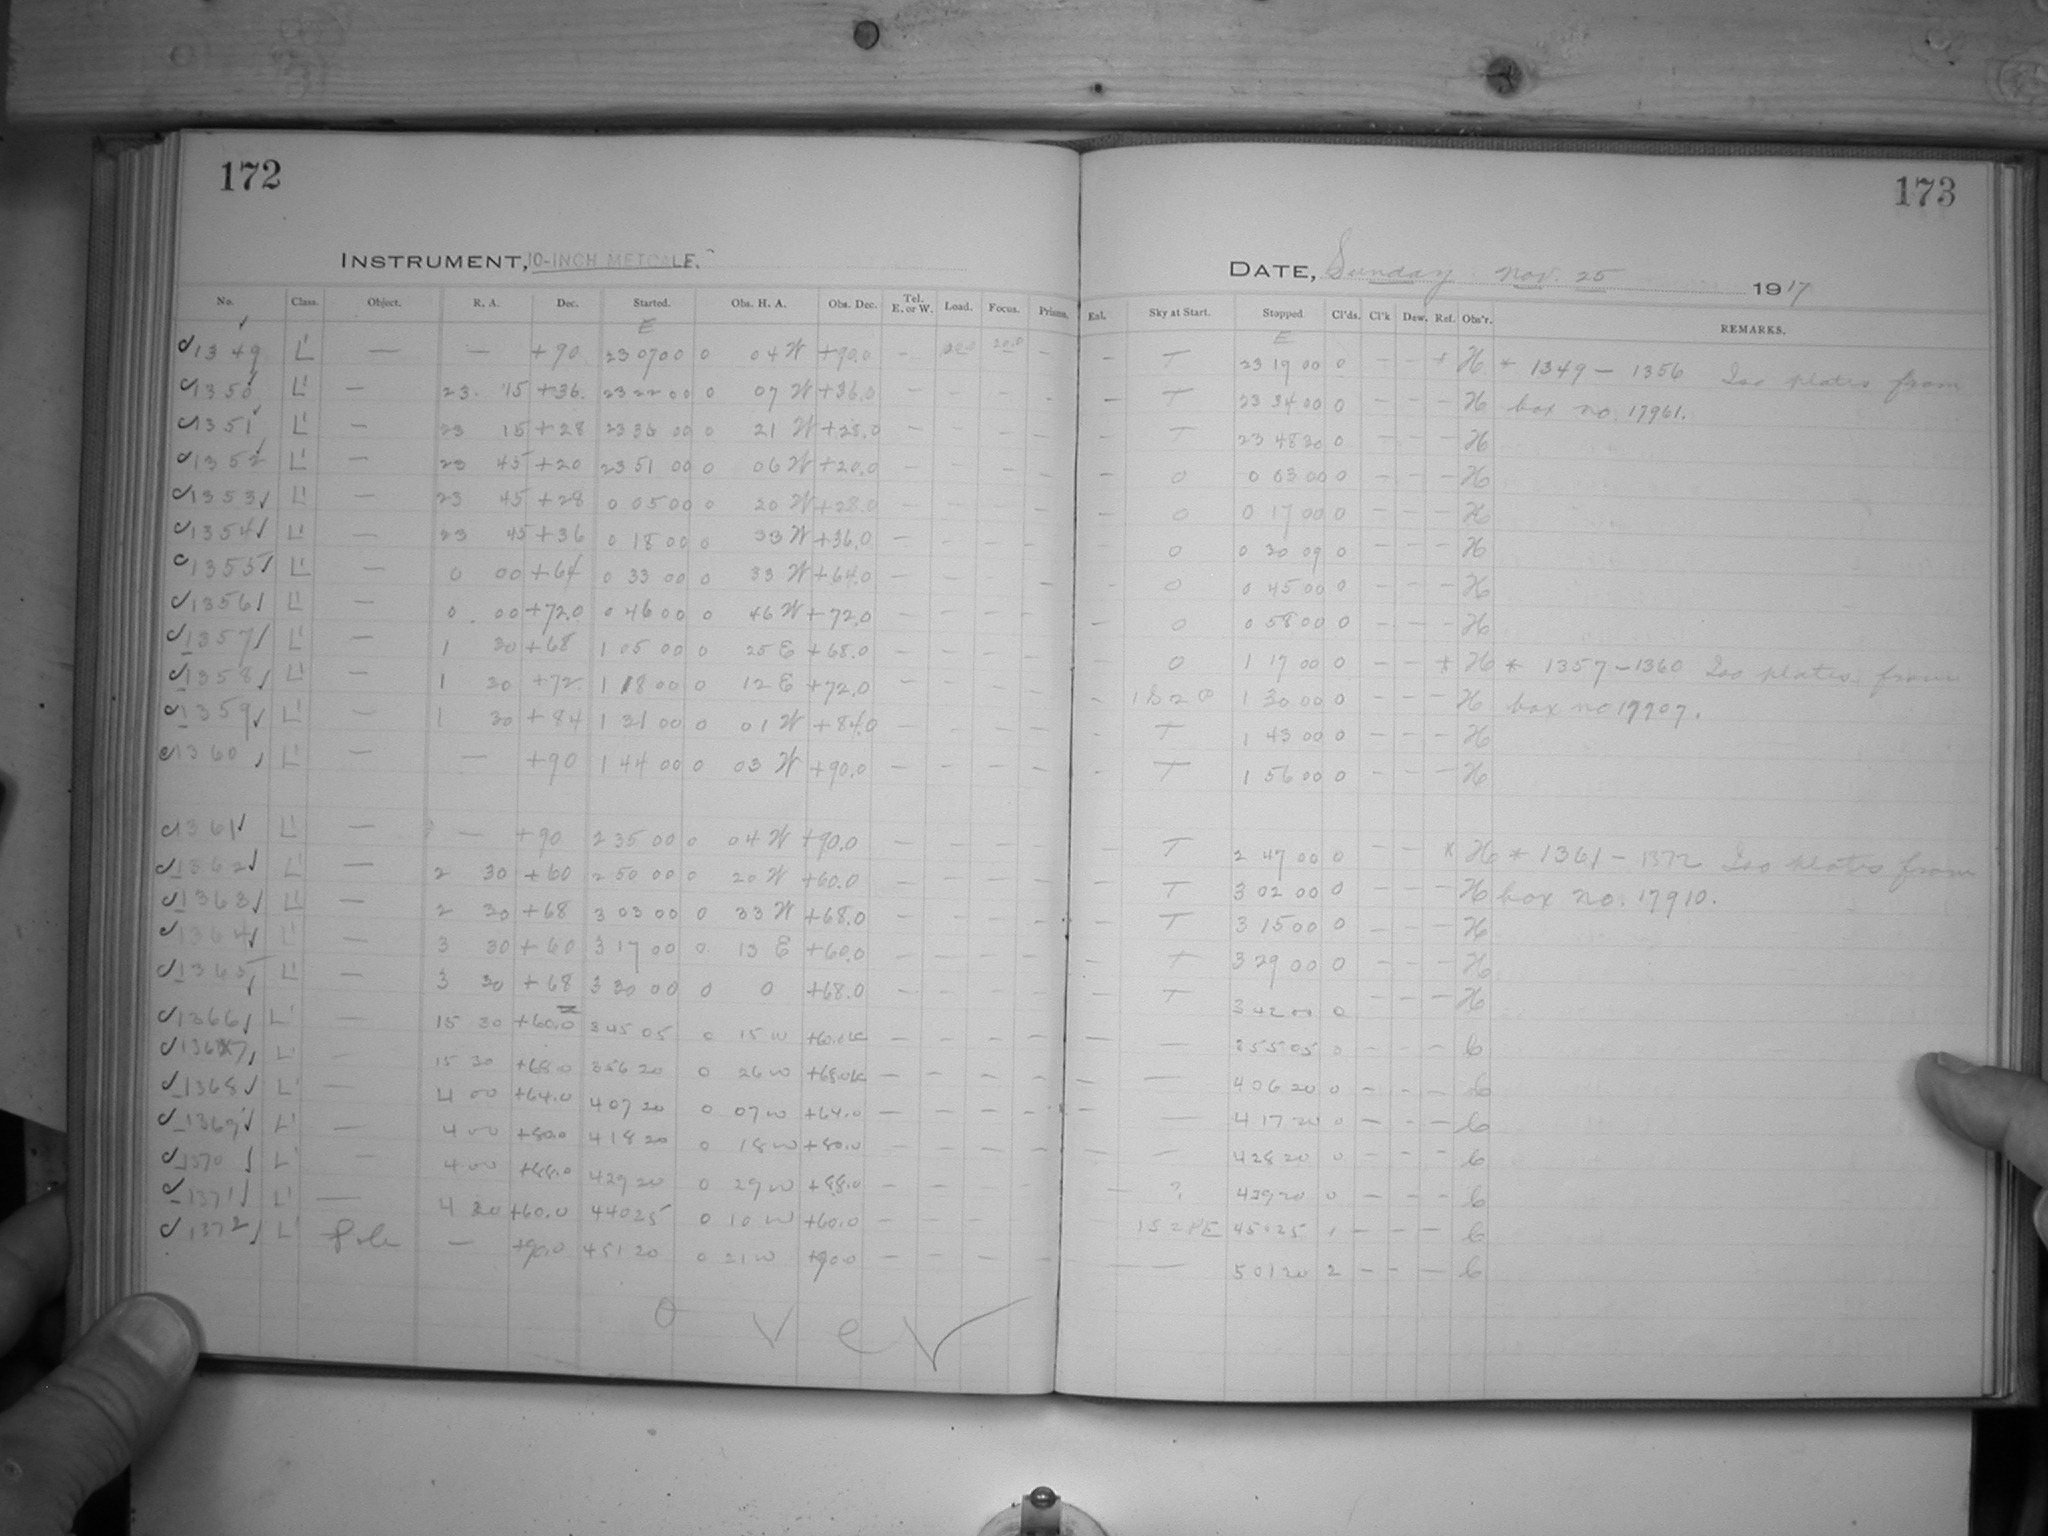 172
INSTRUMENT, 10-INCH METCALF.
No. Class. Object. R. A. Dec. Started. Obs. H. A. Obs. Dec. Tel. E. or W. Load. Focus. Prisms.
E
1349 L' — — +90 23 07 00 0 04 W +90.0 — 20.0 —
1350 L' — 23 15 +36 23 22 00 0 07 W +36.0 — — — —
1351 L' — 23 15 +28 23 36 00 0 21 W +28.0 — — — —
1352 L' — 23 45 +20 23 51 00 0 06 W +20.0 — — — —
1353 L' — 23 45 +28 0 05 00 0 20 W +28.0 — — — —
1354 L' — 23 45 +36 0 18 00 0 33 W +36.0 — — — —
1355 L' — 0 00 +64 0 33 00 0 33 W +64.0 — — — —
1356 L' — 0 00 +72.0 0 46 00 0 46 W +72.0 — — — —
1357 L' — 1 30 +68 1 05 00 0 25 E +68.0 — — — —
1358 L' — 1 30 +72 1 18 00 0 12 E +72.0 — — — —
1359 L' — 1 30 +84 1 31 00 0 01 W +84.0 — — — —
1360 L' — — +90 1 44 00 0 03 W +90.0 — — — —
1361 L' — — +90 2 35 00 0 04 W +90.0 — — — —
1362 L' — 2 30 +60 2 50 00 0 20 W +60.0 — — — —
1363 L' — 2 30 +68 3 03 00 0 33 W +68.0 — — — —
1364 L' — 3 30 +60 3 17 00 0 13 E +60.0 — — — —
1365 L' — 3 30 +68 3 30 00 0 0 +68.0 — — — —
1366 L' — 15 30 +60.0 3 45 05 0 15 W — — — —
1367 L' — 15 30 +68.0 3 56 20 0 26 W — — — —
1368 L' — 4 00 +64.0 4 07 20 0 07 W +64.0 — — — —
1369 L' — 4 00 +80.0 4 18 20 0 18 W +80.0 — — — —
1370 L' — 4 00 +88.0 4 29 20 0 29 W +88.0 — — — —
1371 L' — 4 30 +60.0 4 40 25 0 10 W +60.0 — — — —
1372 L' Pole — +90.0 4 51 20 0 21 W +90.0 — — — —
over
173
DATE, Sunday Nov. 25 1917
Enl. Sky at Start. Stopped. Cl'ds. Cl'k Dew. Ref. Obs'r. REMARKS.
E
— T 23 19 00 0 — — * H * 1349 — 1356 Iso plates from
— T 23 34 00 0 — — — H box no. 17961.
— T 23 48 30 0 — — — H
— 0 0 03 00 0 — — — H
— 0 0 17 00 0 — — — H
0 0 30 09 0 — — — H
— 0 0 45 00 0 — — — H
— 0 0 58 00 0 — — — H
0 1 17 00 0 — — * H * 1357 — 1360 Iso plates from
— 1 S 2 P 1 30 00 0 — — — H box no 17907.
— T 1 43 00 0 — — — H
— T 1 56 00 0 — — — H
— T 2 47 00 0 — — * H * 1361 — 1372 Iso plates from
— T 3 02 00 0 — — — H box no. 17910.
— T 3 15 00 0 — — — H
— T 3 29 00 0 — — — H
— T 3 42 00 0 — — — H
— — 3 55 05 0 — — — C
— — 4 06 20 0 — — — C
— — 4 17 20 0 — — — C
— — 4 28 20 0 — — — C
— ? 4 39 20 0 — — — C
1 S 2 P E 4 50 25 1 — — — C
— — 5 01 20 2 — — — C